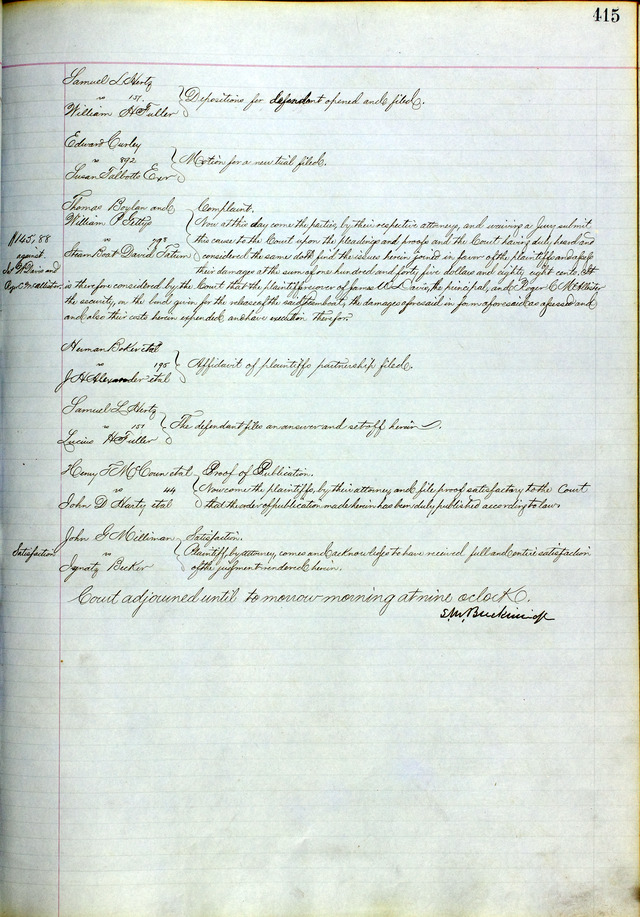 415
Samuel L Hertz
vs 151.
William H Fuller
Depositions for defendant opened and filed.
Edward Curley
vs 892
Susan Talbotts Exr
Motion for a new trial filed.
Thomas Boylan and Complaint.
William P Gettys Now at this day come the parties, by their respective attorneys, and waiving a Jury submit
$145,88 vs 798 this cause to the Court upon the pleadings and proofs and the Court having duly heard and
against Steam Boat David Tatum considered the same doth find the issues herein joined in favor of the plaintiffs and assess
Jas W Davis and their damages at the sum of one hundred and forty five dollars and eighty eight cents. It
Roger C McAllister is therefore considered by the Court that the plaintiffs recover of James W Davis, the principal, and Roger C McAllister
the security, on the bond given for the release of the said steamboat, the damages aforesaid in form aforesaid as assessed and
and also their costs herein expended and have execution therefor.
Herman Boker et al
vs 195
J H Alexander et al
Affidavit of plaintiffs partnership filed.
Samuel L Hertz
vs 151
Lucius H Fuller
The defendant files an answer and set off herein.
Henry T McCoun et al Proof of Publication.
vs 414 Now come the plaintiffs, by their attorney and file proof satisfactory to the Court
John D Harty et al that the order of publication made herein has been duly published according to law.
John G Milliman Satisfaction.
Satisfaction vs Plaintiff, by attorney, comes and acknowledges to have received full and entire satisfaction
Ignatz Becker of the judgment rendered herein.
Court adjourned until tomorrow morning at nine oclock.